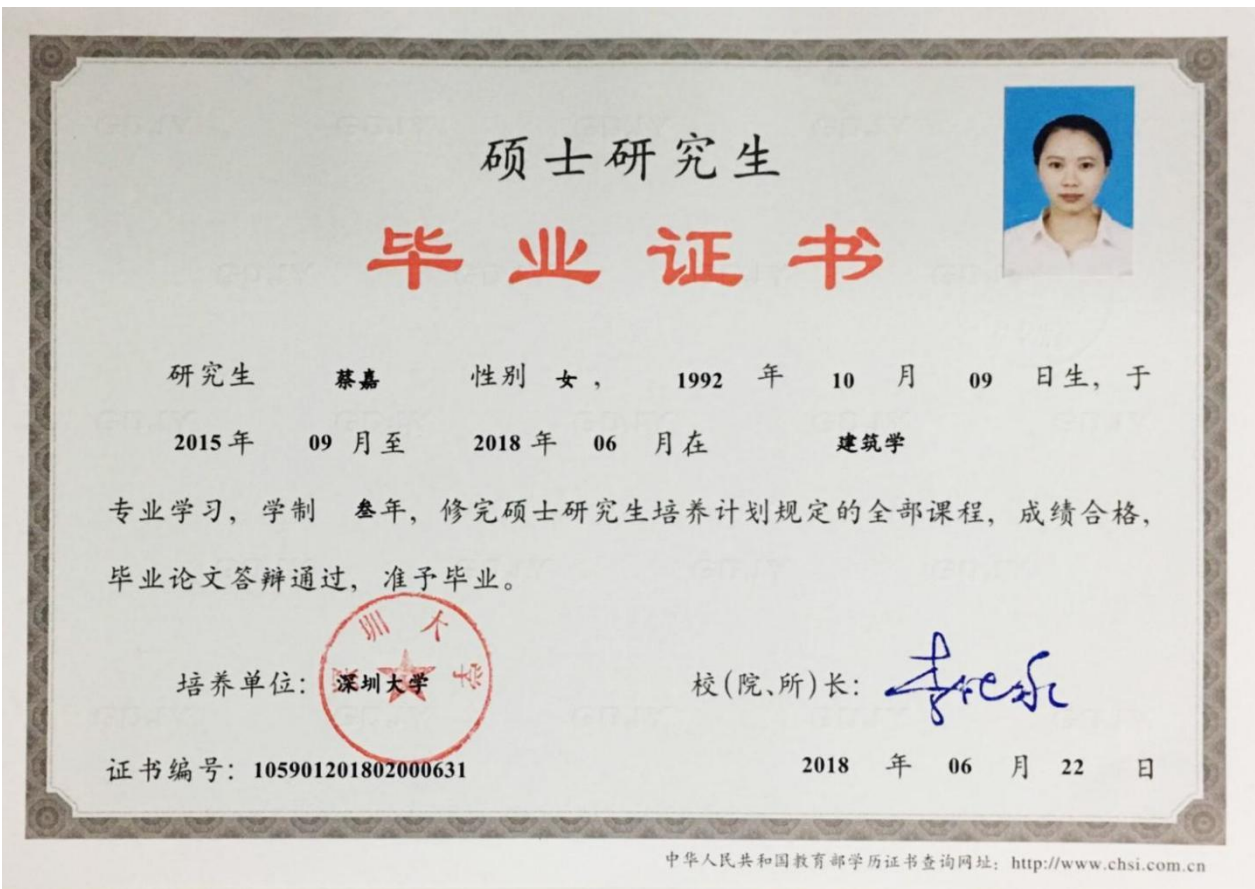 硕士研究生
毕业证书
研究生 蔡嘉 性别 女 , 1992 年 10 月 09 日生, 于
2015 年 09 月至 2018 年 06 月在 建筑学
专业学习, 学制 叁年, 修完硕士研究生培养计划规定的全部课程, 成绩合格,
毕业论文答辩通过, 准予毕业。
深圳大学
培养单位: 深圳大学 校(院、所)长: 李清泉
证书编号: 105901201802000631 2018 年 06 月 22 日
中华人民共和国教育部学历证书查询网址: http://www.chsi.com.cn